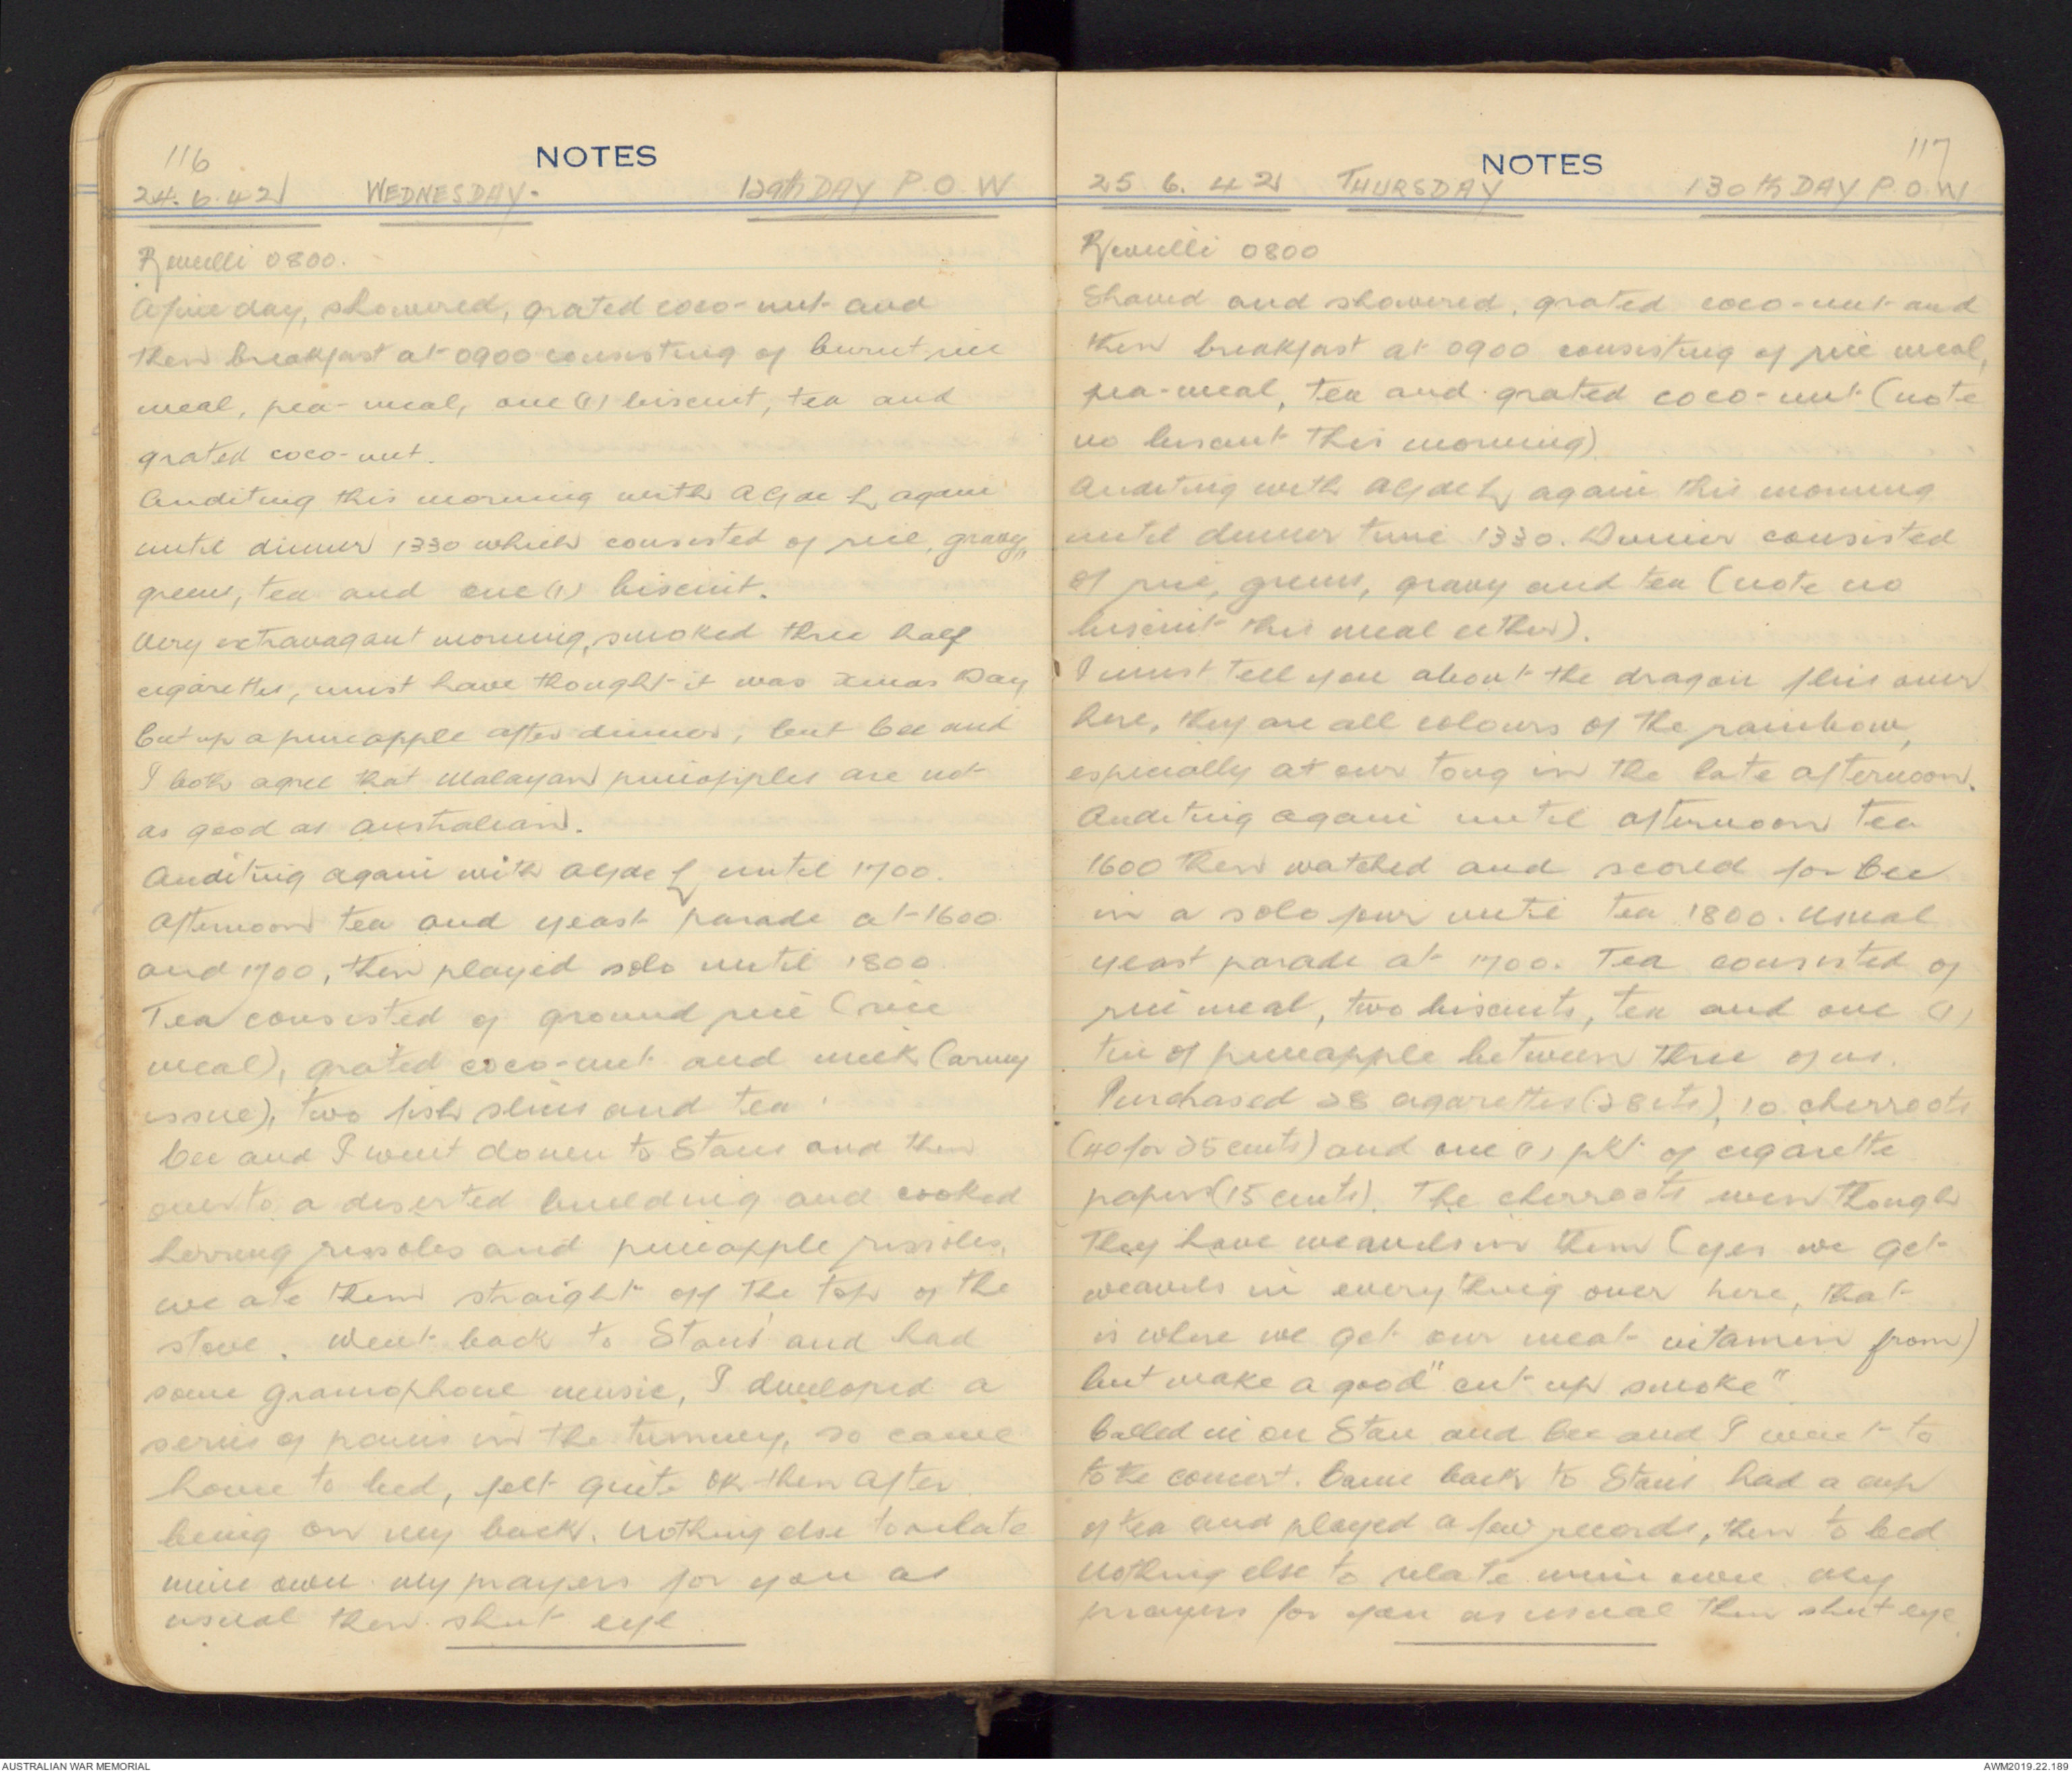 116
NOTES
24.6.42 WEDNESDAY. 129th DAY P.O.W
Revielli 0800.
A fine day, showered, grated coco-nut and
then breakfast at 0900 consisting of burnt rice
meal, pea-meal, one (1) biscuit, tea and
grated coco-nut.
Auditing this morning with again
until dinner 1330 which consisted of rice, gravy,
greens, tea and one (1) biscuit.
Very extravagant morning, smoked three half
cigarettes, must have thought it was Xmas Day
Cut up a pineapple after dinner, but Cec and
I both agree that Malayan pineapples are not
as good as Australian.
Auditing again with until 1700.
Afternoon tea and yeast parade at 1600
and 1700, then played solo until 1800.
Tea consisted of ground rice (rice
meal), grated coco-nut and milk (army
issue), two fish slices and tea.
Cec and I went down to Stans and then
over to a deserted building and cooked
herring rissoles and pineapple rissoles,
we ate them straight off the top of the
stove. Went back to Stans' and had
some gramophone music, I developed a
series of pains in the tummy, so came
home to bed, felt quite OK then after
being on my back. Nothing else to relate
mine own my prayers for you as
usual then shut eye
117
NOTES
25 6. 42 THURSDAY 130th DAY P.O.W
Revielli 0800
Shaved and showered, grated coco-nut and
then breakfast at 0900 consisting of rice meal,
pea-meal, tea and grated coco-nut (note
no biscuit this morning)
Auditing with again this morning
until dinner time 1330. Dinner consisted
of rice, greens, gravy and tea (note no
biscuit this meal either).
I must tell you about the dragon flies over
here, they are all colours of the rainbow,
especially at our tong in the late afternoon.
Auditing again until afternoon tea
1600 then watched and scored for Cec
in a solo four until tea 1800. Usual
yeast parade at 1700. Tea consisted of
rice meal, two biscuits, tea and one (1)
tin of pineapple between three of us.
Purchased 28 cigarettes (28cts), 10 cherroots
(40 for 25 cents) and one (1) pkt of cigarette
papers (15 cents). The cherroots even though
they have weavels in them (yes we get
weavels in everything over here, that
is where we get our meat vitamin from)
but make a good "cut up smoke"
Called in on Stan and Cec and I went to
to the concert. Came back to Stans had a cup
of tea and played a few records, then to bed
Nothing else to relate mine own my
prayers for you as usual then shut eye
AUSTRALIAN WAR MEMORIAL
AWM2019.22.189